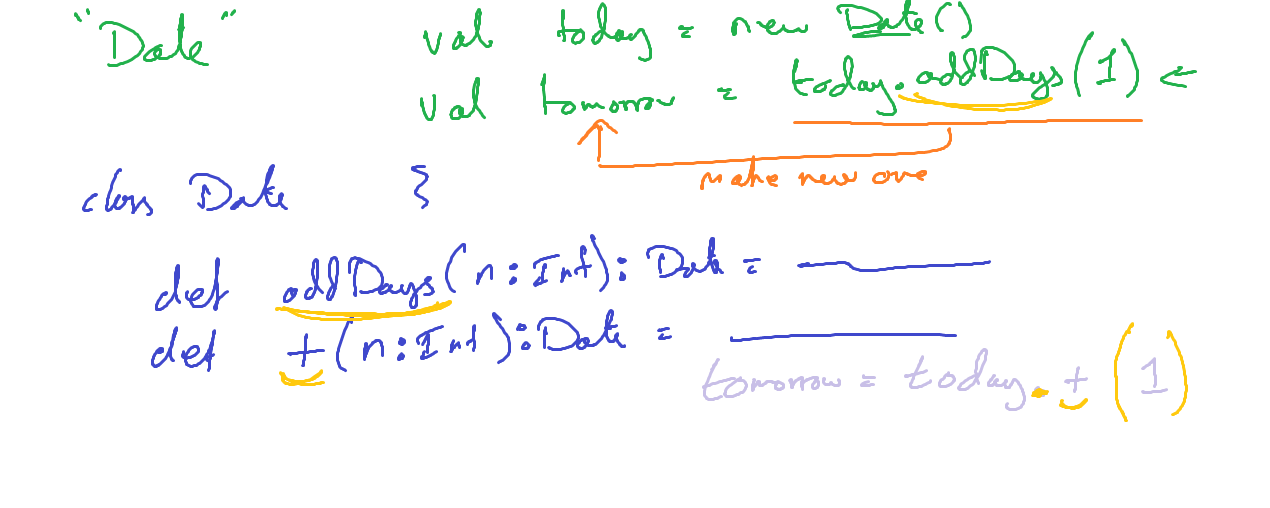 "Date"
val today = new Date()
val tomorrow = today.addDays(1) ←
make new one
class Date {
def addDays(n:Int): Date =
def +(n:Int):Date =
tomorrow = today.+(1)